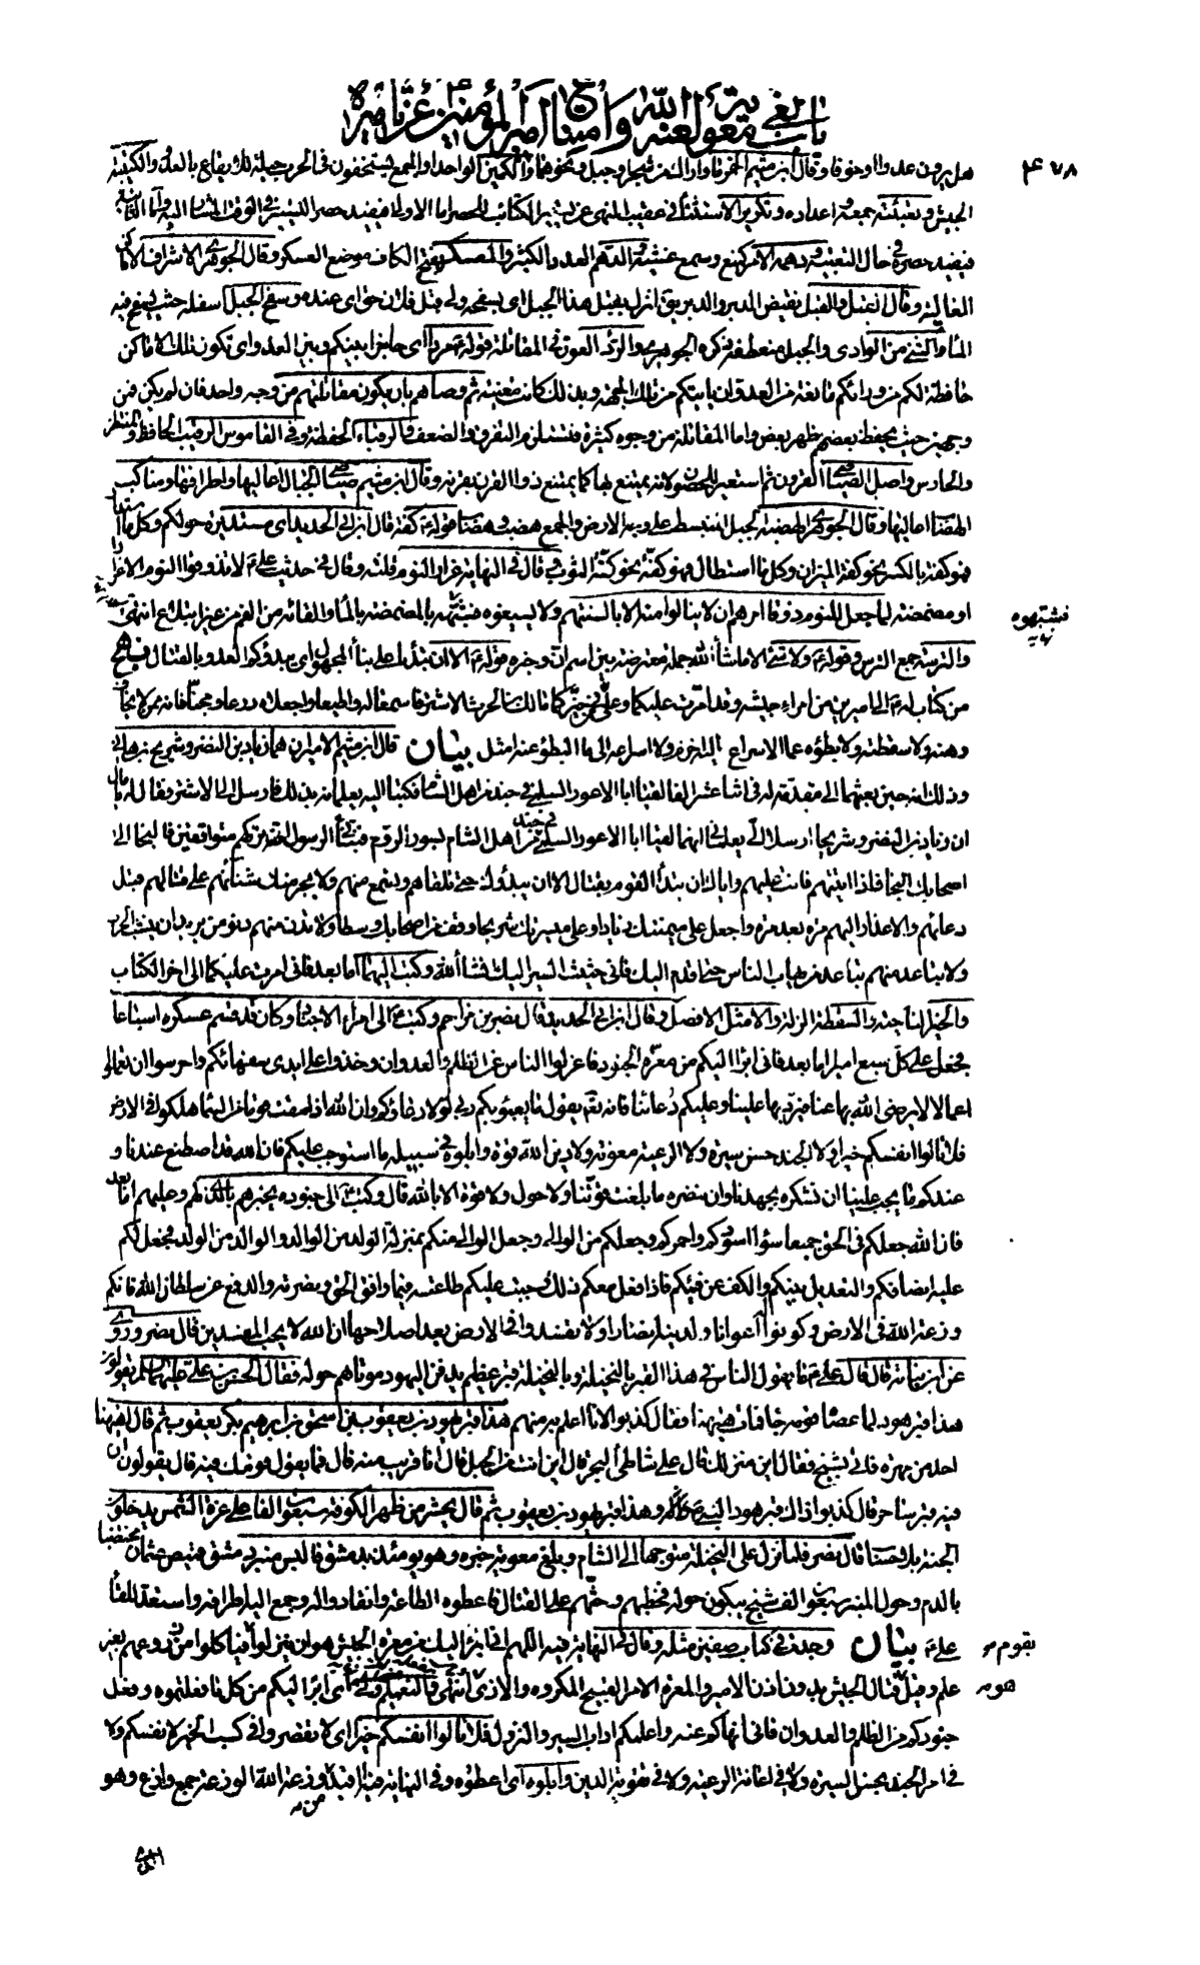 باب بغي معوية لعنه الله وامتناع أمير المؤمنين عن تأميره
٤٧٨
هل يرون عدوا أو خوفا وقال ابن ميثم الخمر ما واراك من شجر أو جبل ونحوهما والكمين الواحد أو الجمع يستخفون في الحرب حيلة للايقاع بالعدو والكتيبة
الجيش وتعبئته جمعه واعداده وتكرير الاستثناء عقيب النهى عن تسيير الكتائب للحصر اما الاولى فيفيد حصر التسيير في الوقت المشار اليه وأما الثانية
فيفيد حصره في حال التعبية ودهمه الامر كمنع وسمع غشيه والدهم العدد الكثير والمعسكر بفتح الكاف موضع العسكر وقال الجوهري الاشراف الاماكن
العالية وقال القبل والقبل نقيض الدبر والدبر يق انزل بقبل هذا الجبل اي بسفحه ولي قبل فلان حق اي عنده وسفح الجبل اسفله حيث يسفح فيه
الماء واثناء من الوادي والجبل منعطفه ذكره الجوهري والردء العون في المقاتلة قوله مردا اي حاجزا بينكم وبين العدو اي تكون تلك الاماكن
حافظة لكم من ورائكم مانعة من العدو ان ياتيكم من تلك الجهة وبذلك كانت معينة ثم وصاهم بان يكون مقاتلتهم من وجه واحد فان لم يكن فمن
وجهين حيث يحفظ بعضهم ظهر بعض واما المقاتلة من وجوه كثيرة فتستلزم التفرق والضعف والرقباء الحفظة وفي القاموس الرقيب الحافظ والمنتظر
والحارس واصل الصياصي القرون ثم استعير للحصون لانه يمتنع بها كما يمتنع ذو القرن بقرنه وقال ابن ميثم صياصي الجبال اعاليها واطرافها ومناكب
الهضاب اعاليها وقال الجوهري الهضبة الجبل المنبسط على وجه الارض والجمع هضب وهضاب قوله ع كفة قال ابن ابي الحديد اي مستديرة حولكم وكل ما استدار
فهو كفة بالكسر نحو كفة الميزان وكل ما استطال فهو كفة نحو كفة الثوب وقال في النهاية غرار النوم قلته وقال في حديث علي ع لا تذوقوا النوم الا غرارا
او مضمضة لما جعل للنوم ذوقا امرهم ان لا ينالوا منه الا بالسنتهم ولا يسيغوه فشبهه بالمضمضة بالماء والقائه من الفم من غير ابتلاع انتهى
فشبهوه
والترسة جمع الترس وقوله ع ولا تسر الا ما شاء الله جملة معترضة بين اسم ان وخبره قوله ع الا ان تبدأ على بناء المجهول اي يبدؤكم العدو بالقتال
من كتاب له ع الى اميرين من امراء جيشه وقد امرت عليكما وعلى من في حيزكما مالك بن الحرث الاشتر فاسمعا له واطيعا واجعلاه درعا ومجنا فانه ممن لا يخاف
وهنه ولا سقطته ولا بطؤه عما الاسراع اليه احزم ولا اسراعه الى ما البطؤ عنه امثل بيان قال ابن ميثم الاميران هما زياد بن النضر وشريح بن هاني
وذلك انه حين بعثهما الى مقدمة له في اثنا عشر الفا لقيا ابا الاعور السلمي في جند من اهل الشام فكتبا اليه يعلمانه بذلك فارسل الى الاشتر فقال له يا مالك
ان زياد بن النضر وشريحا ارسلا الي يعلماني انهما لقيا ابا الاعور السلمي في جند من اهل الشام بسور الروم فنبأني الرسول انه تركهم متواقفين فالنجا الى
اصحابك النجا فاذا اتيتهم فانت عليهم واياك ان تبدأ القوم بقتال الا ان يبدؤك حتى تلقاهم وتسمع منهم ولا يجرمنك شنآنهم على قتالهم قبل
دعائهم والاعذار اليهم مرة بعد مرة واجعل على ميمنتك زيادا وعلى ميسرتك شريحا وقف من اصحابك وسطا ولا تدن منهم دنو من يريد ان ينشب الحرب
ولا تباعد منهم تباعد من يهاب الناس حتى اقدم اليك فاني حثيث السير اليك انشاء الله وكتب اليهما اما بعد فاني امرت عليكما الى اخر الكتاب
والحيز الناحية والسقطة الزلة والامثل الافضل وقال ابن ابي الحديد قال نصر بن مزاحم وكتب ع الى امراء الاجناد وكان قد قسم عسكره اسباعا
فجعل على كل سبع اميرا اما بعد فاني ابرأ اليكم من معرة الجنود فاعزلوا الناس عن الظلم والعدوان وخذوا على ايدي سفهائكم واحترسوا ان تعملوا
اعمالا لا يرضى الله بها عنا فيرد بها علينا وعليكم دعائنا فانه تع يقول ما يعبؤ بكم ربي لولا دعاؤكم وان الله اذا مقت قوما من السماء هلكوا في الارض
فلا تالوا انفسكم خيرا ولا الجند حسن سيرة ولا الرعية معونة ولا دين الله قوة وابلوه في سبيله ما استوجب عليكم فان الله قد اصطنع عندنا و
عندكم ما يجب علينا ان نشكره بجهدنا وان ننصره ما بلغت قوتنا ولا حول ولا قوة الا بالله قال وكتب ع الى جنوده يخبرهم بالذي لهم وعليهم اما بعد
فان الله جعلكم في الحق جميعا سواء اسودكم واحمركم وجعلكم من الوالي وجعل الوالي منكم بمنزلة الولد من الوالد والوالد من الولد فجعل لكم
عليه انصافكم والتعديل بينكم والكف عن فيئكم فاذا فعل معكم ذلك وجبت عليكم طاعته فيما وافق الحق ونصرته والدفع عن سلطان الله فانكم
وزعة الله في الارض فكونوا له اعوانا ولدينه انصارا ولا تفسدوا في الارض بعد اصلاحها ان الله لا يحب المفسدين قال نصر وروي
عن ابن نباتة قال قال علي ع ما يقول الناس في هذا القبر بالنخيلة وبالنخيلة قبر عظيم يدفن اليهود موتاهم حوله فقال الحسن بن علي عليهما السلم يقولون
هذا قبر هود لما عصاه قومه جاء فمات هيهنا فقال كذبوا لانا اعلم به منهم هذا قبر يهودا بن يعقوب بن اسحق بن ابرهيم بكر يعقوب ثم قال اههنا
احد من مهرة فاتي بشيخ فقال اين منزلك قال على شاطئ البحر قال اين انت من الجبل قال انا قريب منه قال فما يقول قومك فيه قال يقولون ان
فيه قبر ساحر قال كذبوا ذاك قبر هود النبي ع وهذا قبر يهودا بن يعقوب ثم قال يحشر من ظهر الكوفة سبعون الفا على غرة الشمس يدخلون
الجنة بلا حساب قال نصر فلما نزل على النخيلة متوجها الى الشام وبلغ معوية خبره وهو يومئذ بدمشق قد البس منبر دمشق قميص عثمان مختضبا
بالدم وحول المنبر سبعون الف شيخ يبكون حوله فخطبهم وحثهم على القتال فاعطوه الطاعة وانقادوا له وجمع اليه اطرافه واستعد للقاء
علي ع بيان وجدته في كتاب صفين مثله وقال في النهاية فيه اللهم اني ابرأ اليك من معرة الجيش هو ان ينزلوا بقوم فيأكلوا من زروعهم بغير
علم وقيل قتال الجيش بدون اذن الامير والمعرة الامر القبيح المكروه والاذى انتهى اي ابرأ اليكم من كل ما فعلتموه وفعل
جنودكم من الظلم والعدوان فاني انهاكم عنه واعلمكم اداب السير والنزول فلا تالوا انفسكم خيرا اي لا تقصروا في كسب الخير لانفسكم ولا
في امر الجند بحسن السيرة ولا في اعانة الرعية ولا في تقوية الدين وابلوه اي اعطوه وفي النهاية وزعة الله الوزعة جمع وازع وهو